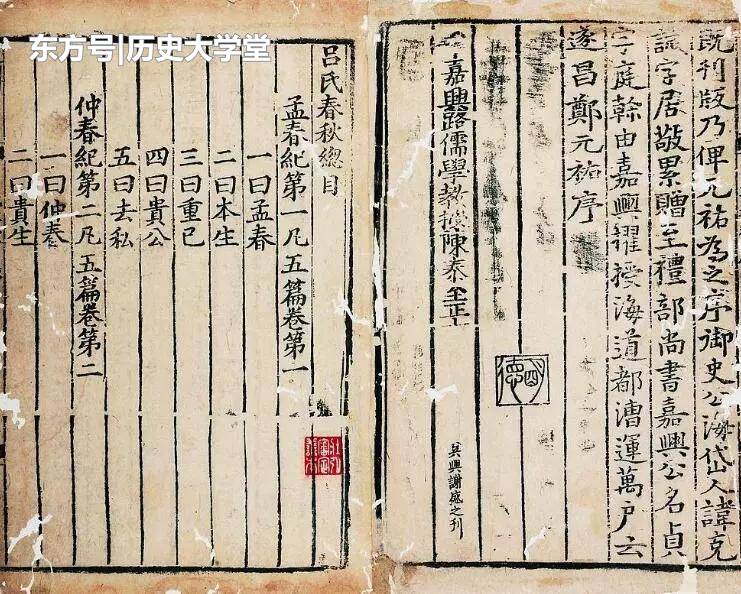 东方号|历史大学堂
既刋版乃俾元祐為之序御史公海岱人諱克
誠字居敬累贈至禮部尚書嘉興公名貞
字庭幹由嘉興擢授海道都漕運萬户云
遂昌鄭元祐序
嘉興路儒學教授陳泰至正
吴興謝盛之刊
吕氏春秋總目
孟春紀第一凡五篇卷第一
一曰孟春
二曰本生
三曰重己
四曰貴公
五曰去私
仲春紀第二凡五篇卷第二
一曰仲春
二曰貴生